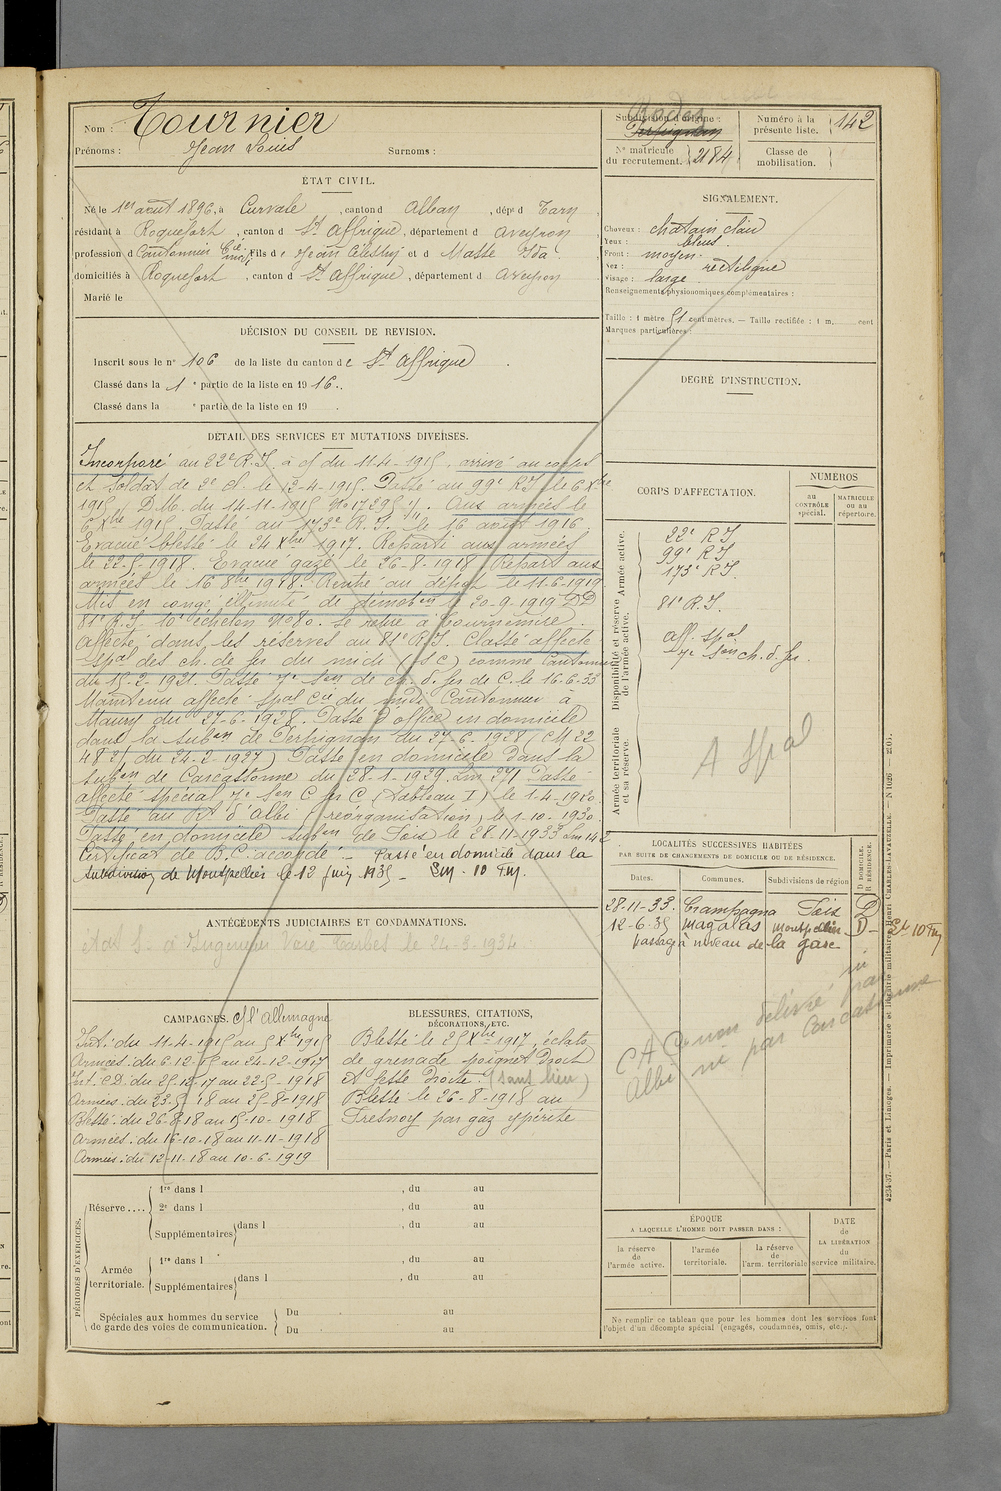 Nom : Tournier
Prénoms : Jean Louis Surnoms :
ÉTAT CIVIL.
Né le 1er août 1896, à Curvale, canton d Alban, dépt d Tarn
résidant à Roquefort, canton d St Affrique, département d Aveyron
profession d Cantonnier Cie midi, fils d Jean Célestin et d Masse Ida
domiciliés à Roquefort, canton d St Affrique, département d Aveyron
Marié le
DÉCISION DU CONSEIL DE REVISION.
Inscrit sous le n° 106 de la liste du canton de St Affrique.
Classé dans la 1e partie de la liste en 1916.
Classé dans la e partie de la liste en 19 .
DÉTAIL DES SERVICES ET MUTATIONS DIVERSES.
Incorporé au 22e R.I. à c/ du 11-4-1915, arrivé au corps
et soldat de 2e cl. le 12-4-1915. Passé au 99e RI le 6 Xbre
1915 (D.M. du 14-11-1915 N° 17295 1/1. Aux armées le
6 Xbre 1915. Passé au 173e R.I. le 16 août 1916.
Evacué blessé le 24 Xbre 1917. Reparti aux armées
le 22-5-1918. Evacué gazé le 26-8-1918 Repart aux
armées le 16 8bre 1918. Rentré au dépôt le 11-6-1919
Mis en congé illimité de démobon le 20-9-1919 DD
81e R.I. 10e échelon N° 80. Se retire à Tournemire.
Affecté dans les réserves au 81e R.I. Classé affecté
spal des ch. de fer du midi (S C) comme Cantonnier
du 15-2-1921. Passé 7e Son de ch. d. fer de C. le 16-6-33
Maintenu affecté spal Cie du midi Cantonnier à
Maury du 27-6-1928. Passé d'office en domicile
dans la subon de Perpignan du 27-6-1928 (CM 22
48 2/ du 24-2-1927) Passé en domicile dans la
subon de Carcassonne du 28-1-1929. Em 271 Passé
affecté spécial 7e Son C fer C (Tableau I) le 1-4-1930.
Passé au Rt d'Albi (réorganisation) le 1-10-1930.
Passé en domicile subon de Foix le 28-11-1933 Em 142
Certificat de B.C. accordé - Passé en domicile dans la
subdivision de Montpellier le 12 Juin 1935 - Em. 10 Fm.
ANTÉCÉDENTS JUDICIAIRES ET CONDAMNATIONS.
Etat S. à Ingénieur Voie Tarbes le 24-8-1934.
CAMPAGNES. C/ l'Allemagne
Int: du 11-4-1915 au 5 Xbre 1915
Armées: du 6-12-15 au 24-12-1917
Int. CD: du 25-12-17 au 22-5-1918
Armées: du 23-5-18 au 25-8-1918
Blessé: du 26-8-18 au 15-10-1918
Armées: du 16-10-18 au 11-11-1918
Armées: du 12-11-18 au 10-6-1919
BLESSURES, CITATIONS,
DÉCORATIONS, ETC.
Blessé le 25 Xbre 1917, éclats
de grenade poignet droit
et fesse droite. (sans lieu)
Blessé le 26-8-1918 au
Fresnoy par gaz ypérite
PÉRIODES D'EXERCICES.
Réserve ....
1re dans l , du au
2e dans l , du au
Supplémentaires dans l , du au
Armée territoriale.
1re dans l , du au
Supplémentaires dans l , du au
Spéciales aux hommes du service
de garde des voies de communication.
Du au
Du au
Subdivision d'origine :
Rodez
Perpignan
N° matricule du recrutement. 2184
Numéro à la présente liste. 142
Classe de mobilisation.
SIGNALEMENT.
Cheveux : chatain clair
Yeux : bleus.
Front : moyen.
Nez : rectiligne
Visage : large
Renseignements physionomiques complémentaires :
Taille : 1 mètre 51 centimètres. — Taille rectifiée : 1 m. cent
Marques particulières :
DEGRÉ D'INSTRUCTION.
CORPS D'AFFECTATION.
NUMEROS
au CONTRÔLE spécial.
MATRICULE ou au répertoire.
Armée active.
22e RI
99e RI
173e RI.
Disponibilité et réserve de l'armée active.
81e R.I.
aff. spal
7e Son ch. d. fer.
Armée territoriale et sa réserve.
A Spal
LOCALITÉS SUCCESSIVES HABITÉES
PAR SUITE DE CHANGEMENTS DE DOMICILE OU DE RÉSIDENCE.
Dates. Communes. Subdivisions de région D DOMICILE. R RÉSIDENCE.
28-11-33. Crampagna Foix D
12-6-35 Magalas Montpellier D- Em 10 Fm
passage à niveau de la gare
CA Connu délivré ni par
Albi ni par Carcassonne
ÉPOQUE
A LAQUELLE L'HOMME DOIT PASSER DANS :
la réserve de l'armée active.
l'armée territoriale.
la réserve de l'arm. territoriale
DATE de LA LIBÉRATION du service militaire.
Ne remplir ce tableau que pour les hommes dont les services font
l'objet d'un décompte spécial (engagés, condamnés, omis, etc.).
4234-37. — Paris et Limoges. — Imprimerie et librairie militaires Henri CHARLES-LAVAUZELLE.